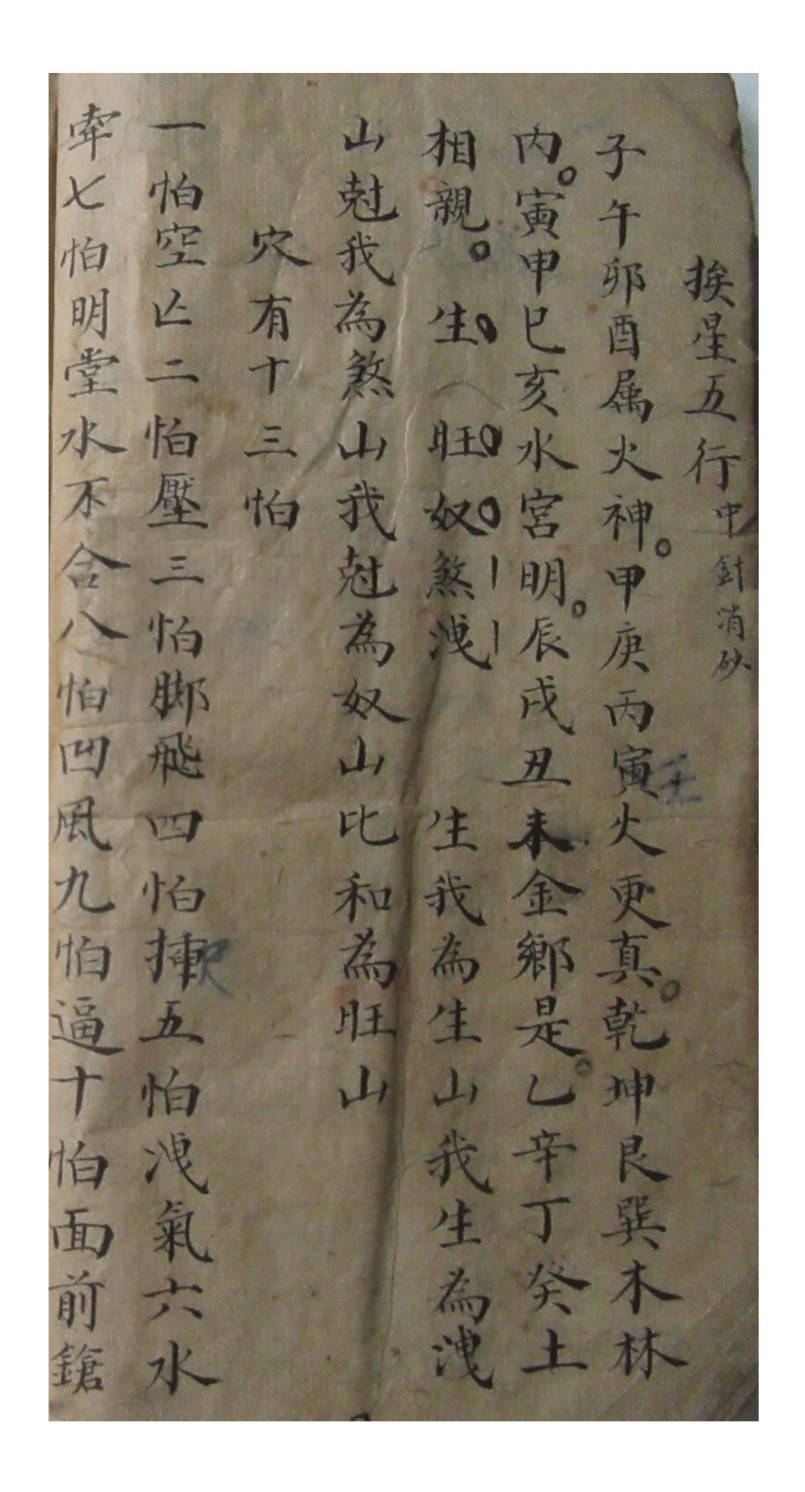 挨星五行中針消砂
子午卯酉属火神。甲庚丙寅火更真。乾坤艮巽木林
内。寅申巳亥水宮明。辰戌丑未金鄉是。乙辛丁癸土
相親。生旺奴煞洩 生我為生山我生為洩
山尅我為煞山我尅為奴山比和為旺山
穴有十三怕
一怕空亡二怕壓三怕脚飛四怕捶五怕洩氣六水
牽七怕明堂水不合八怕凹風九怕逼十怕面前鎗